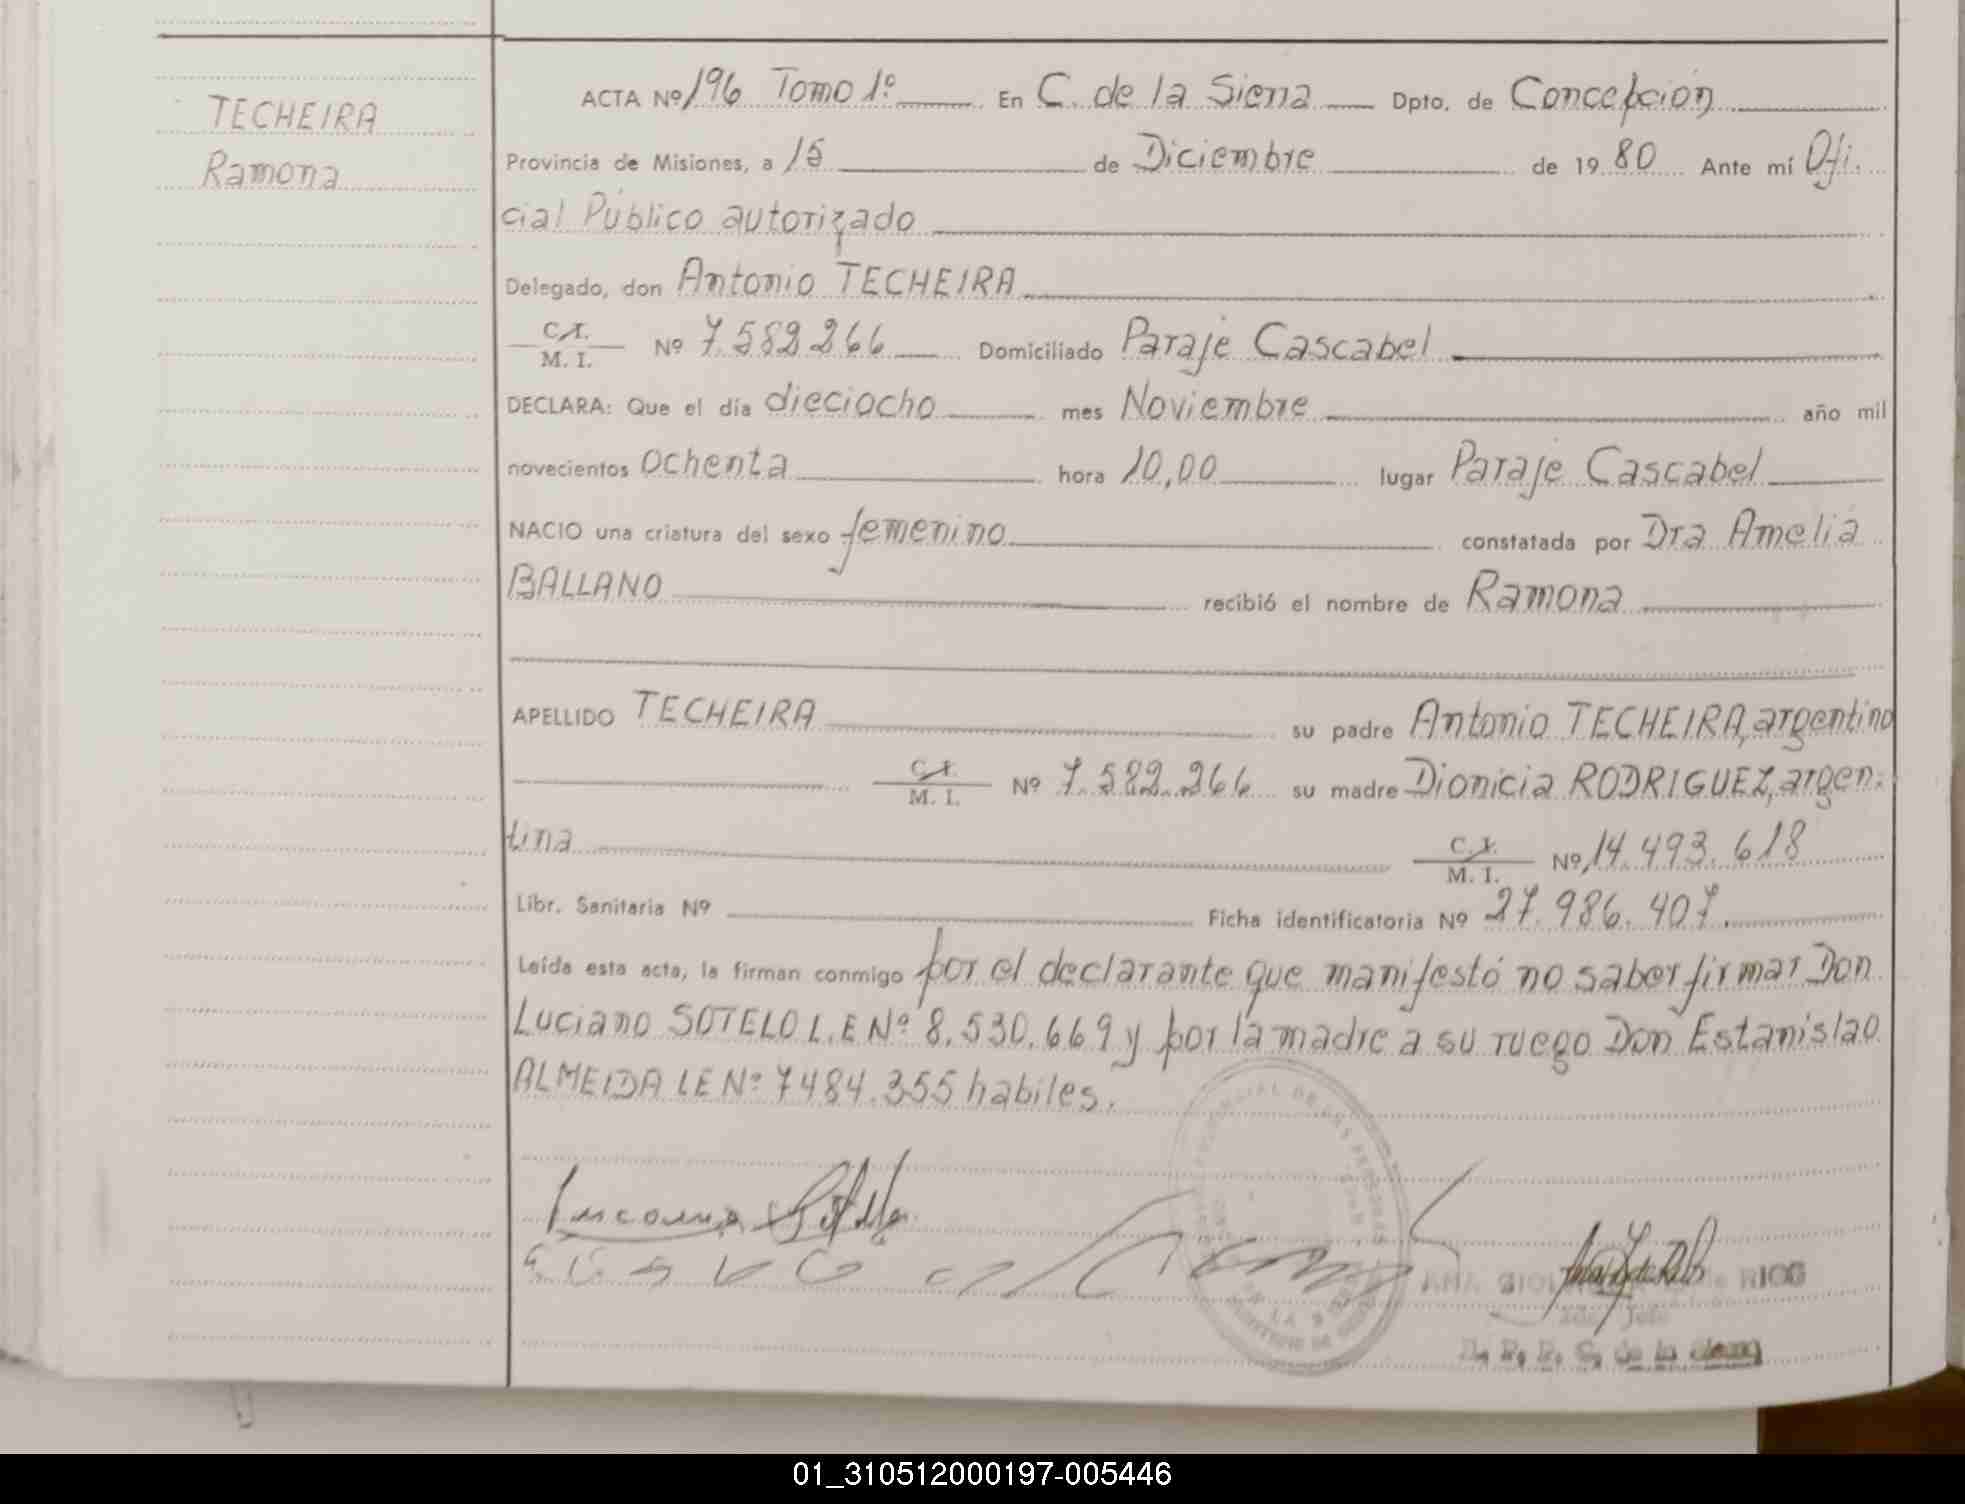 TECHEIRA
Ramona
ACTA Nº 196 Tomo 1º En C. de la Sierra Dpto. de Concepción
Provincia de Misiones, a 15 de Diciembre de 1980 Ante mí Ofi.
cial Público autorizado
Delegado, don Antonio TECHEIRA
C.I. M. I. Nº 7.582.266 Domiciliado Paraje Cascabel
DECLARA: Que el día dieciocho mes Noviembre año mil
novecientos ochenta hora 10,00 lugar Paraje Cascabel
NACIO una criatura del sexo femenino constatada por Dra Amelia
BALLANO recibió el nombre de Ramona
APELLIDO TECHEIRA su padre Antonio TECHEIRA, argentino
C.I. M. I. Nº 7.582.266 su madre Dionicia RODRIGUEZ, argen.
tina C.I. M. I. Nº 14.493.618
Libr. Sanitaria Nº Ficha identificatoria Nº 27.986.407
Leída esta acta, la firman conmigo por el declarante que manifestó no saber firmar Don
Luciano SOTELO L.E Nº 8.530.669 y por la madre a su ruego Don Estanislao
ALMEIDA LE Nº 7484.355 habiles.
ANA
de la Sierra
01_310512000197-005446